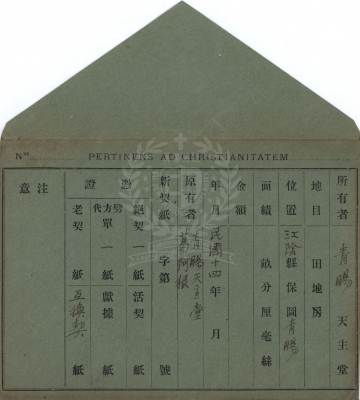 Nº
PERTINENS AD CHRISTIANITATEM
所有者 青腸 天主堂
地目 田地房
位置 江陰縣保圖青腸
面績 畝分厘毫絲
金額
年月 民國十四年 月
原有者 青腸天主堂 葛阿根
新契紙 字第 號
證憑
絕契一紙 活契 紙
代方單 一紙 獻據 紙
老契 紙 互換契 紙
注意